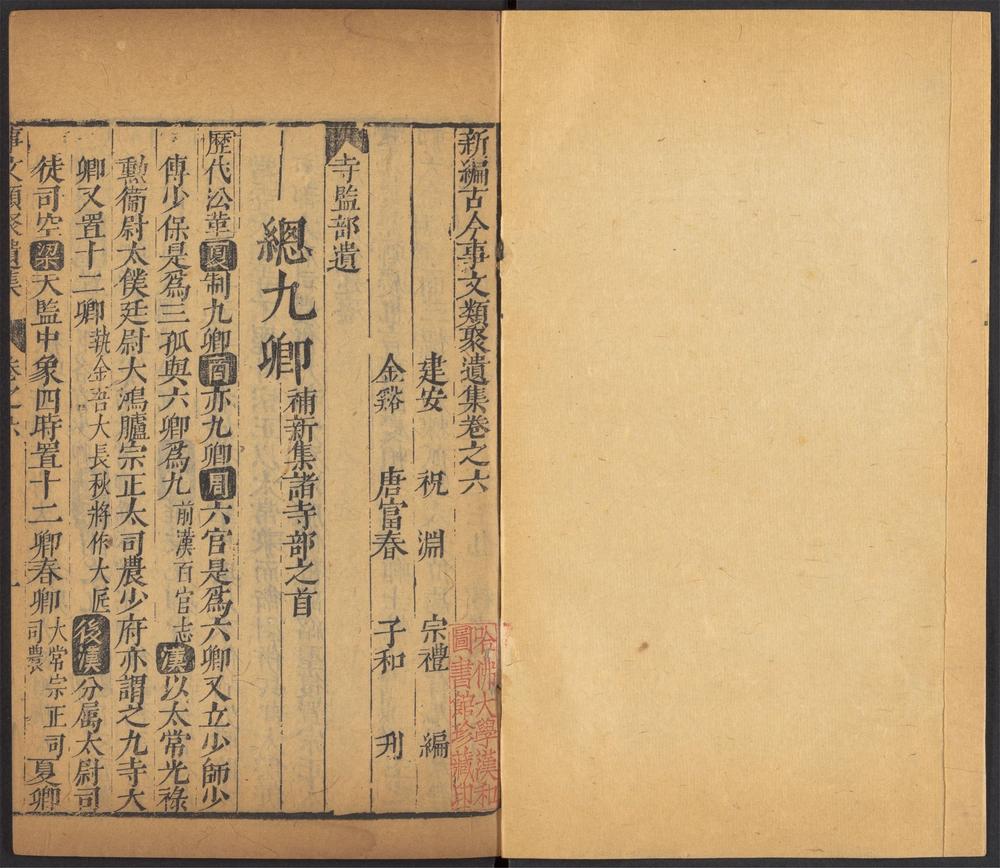 新編古今事文類聚遺集卷之六
建安 祝 淵 宗禮 編
金谿 唐富春 子和 刋
寺監部遺
總九卿補新集諸寺部之首
歷代沿革夏制九卿商亦九卿周六官是爲六卿又立少師少
傅少保是爲三孤與六卿爲九前漢百官志漢以太常光祿
勳衞尉太僕廷尉大鴻臚宗正大司農少府亦謂之九寺大
卿又置十二卿執金吾大長秋將作大匠後漢分屬太尉司
徒司空梁天監中象四時置十二卿春卿大常宗正司司農夏卿
事文類聚遺集 卷之六 一
哈佛大學漢和
圖書館珍藏印